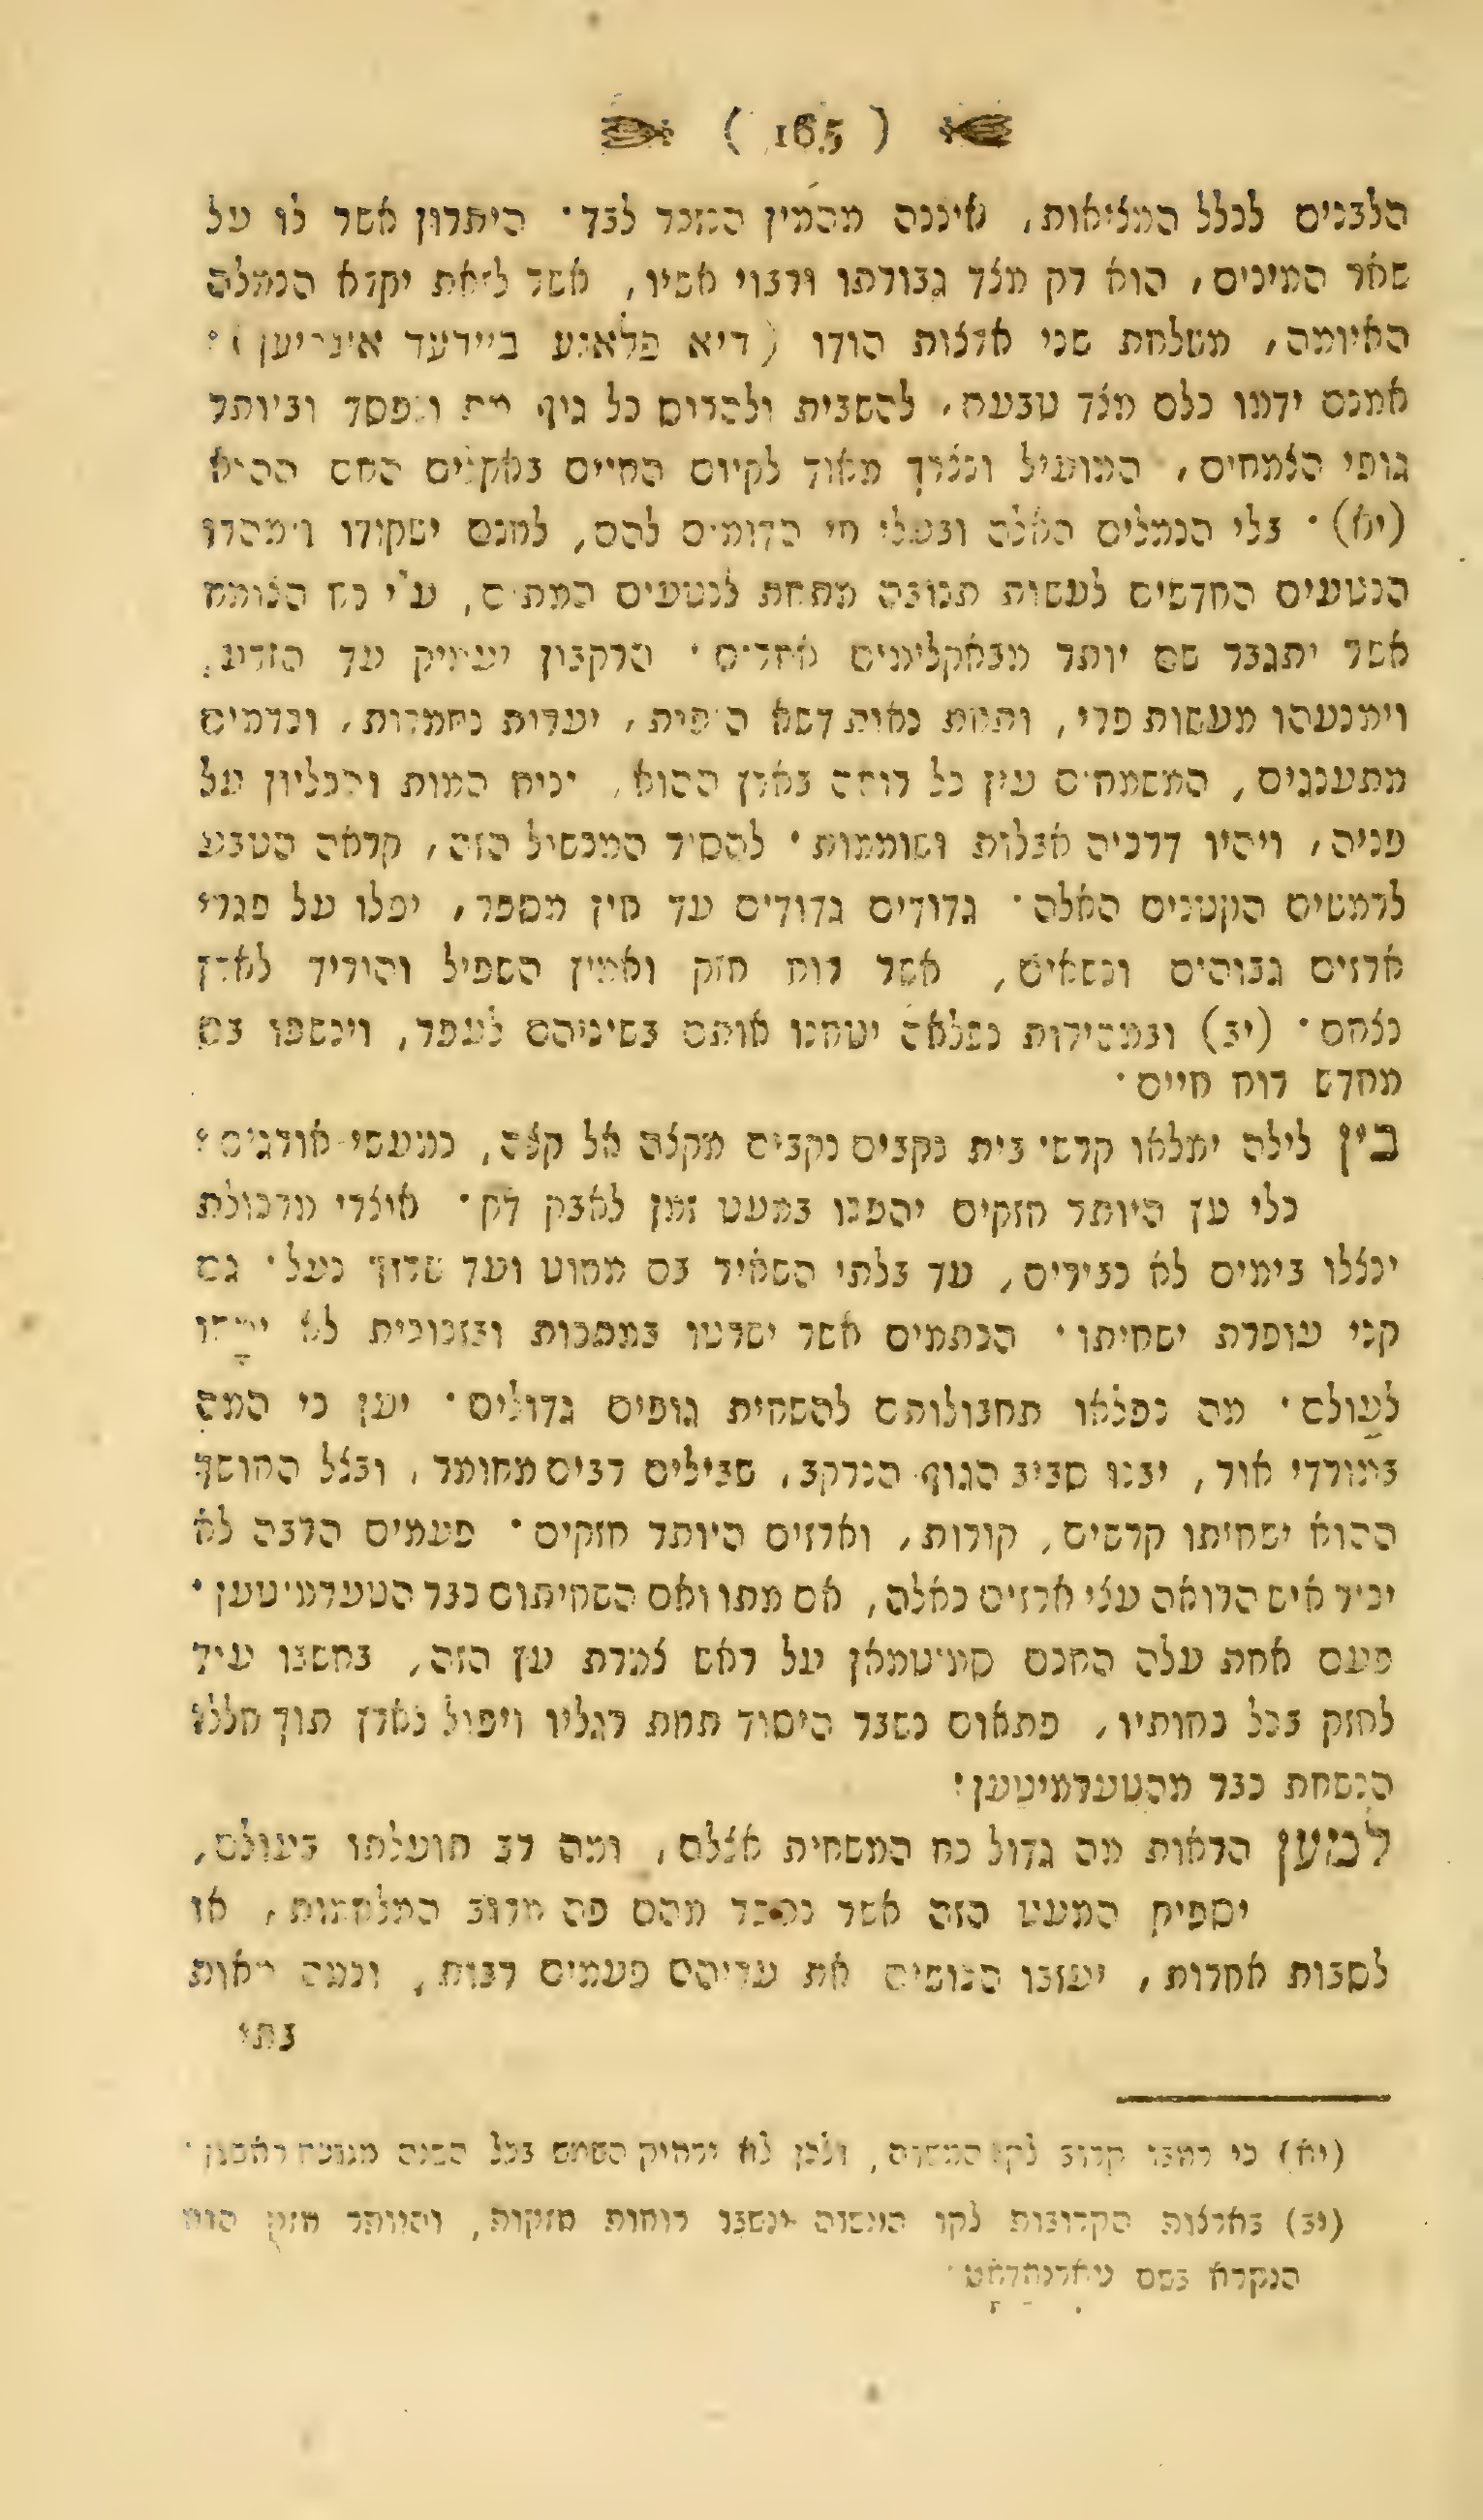 ( 165 )
הלבנים לכלל המציאות, איננה מהמין הנזכר לבד · היתרון אשר לו על
שאר המינים, הוא רק מצד גבורתו ורבוי אשיו, אשר לזאת יקרא הנמלה
האיומה, משלחת שני ארצות הודו (דיא פלאגע ביידער אינדיען) :
אמנם ידמו כלם מצד טבעם, להשבית ולהרוס כל גוף מת ונפסד וביותר
גופי הצמחים, המועיל ונצרך מאוד לקיום החיים באקלים החם ההוא
(יא) · בלי הנמלים האלה ובעלי חי הדומים להם, לחנם ישקודו וימהרו
הנטעים החדשים לעשות תנובה מתחת לנטעים המתים, ע"י כח הצומח
אשר יתגבר שם יותר מבאקלימים אחרים · הרקבון יעמיק עד הזרע,
וימנעהו מעשות פרי, ותחת נאות דשא היפית, יערות נחמדות, וכרמים
מתענגים, המשמחים עין כל רואה בארץ ההוא, יניח המות והכליון על
פניה, ויהיו דרכיה אבלות ושוממות · להסיר המכשול הזה, קראה הטבע
לרמשים הקטנים האלה · גדודים גדודים עד אין מספר, יפלו על פגרי
ארזים גבוהים ונשאים, אשר רוח חזק ואמיץ השפיל והוריד לארץ
נצחם · (יב) ובמהירות נפלאה יטחנו אותם בשיניהם לעפר, וינשפו בם
מחדש רוח חיים ·
בין לילה ימלאו קרשי בית נקבים נקבים מקצה אל קצה, כמעשי אורגים :
כלי עץ היותר חזקים יהפכו במעט זמן לאבק דק · אוצרי מרכולת
ינצלו בימים לא כבירים, עד בלתי השאיר בם מחוט ועד שרוך נעל · גם
קני עופרת ישחיתו · הכתמים אשר ישרטו במתכות ובזכוכית לא ימחו
לעולם · מה נפלאו תחבולותם להשחית גופים גדולים · יען כי המה
במורדי אור, יבנו סביב הגוף הנרקב, שבילים רבים מחומר, ובצל החושך
ההוא ישחיתו קרשים, קורות, וארזים היותר חזקים · פעמים הרבה לא
יכיר איש הרואה עצי ארזים כאלה, אם מתו ואם השחיתום כבר הטערמיטען ·
פעם אחת עלה החכם סמיטמאן על ראש צמרת עץ הזה, בחשבו עוד
לחזק בכל כחותיו, פתאום נשבר היסוד תחת רגליו ויפול בארץ תוך חללו
הנשחת כבר מהטערמיטען :
למען הראות מה גדול כח המשחית אצלם, ומה רב תועלתו בעולם,
יספיק המעט הזה אשר נחבר מהם פה מרוב המלחמות, או
לסבות אחרות, יעזבו הכושים את עריהם פעמים רבות, וכמה מאות
בתי
(יא) כי המה קרוב לקו המשוה, ולכן לא ירחיק השמש בכל השנה מנוכח ראשון ·
(יב) בארצות הקרובות לקו המשוה ינשבו רוחות חזקות, והיותר חזק הוא
הנקרא בשם